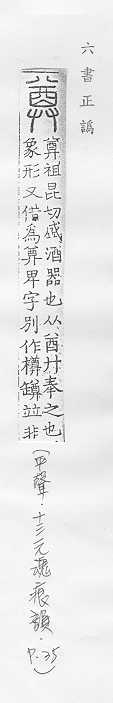 六書正譌
尊
尊祖昆切盛酒器也从酋廾奉之也
象形又借為尊卑字別作樽罇竝非
(平聲．十三元魂痕韻．P.35)